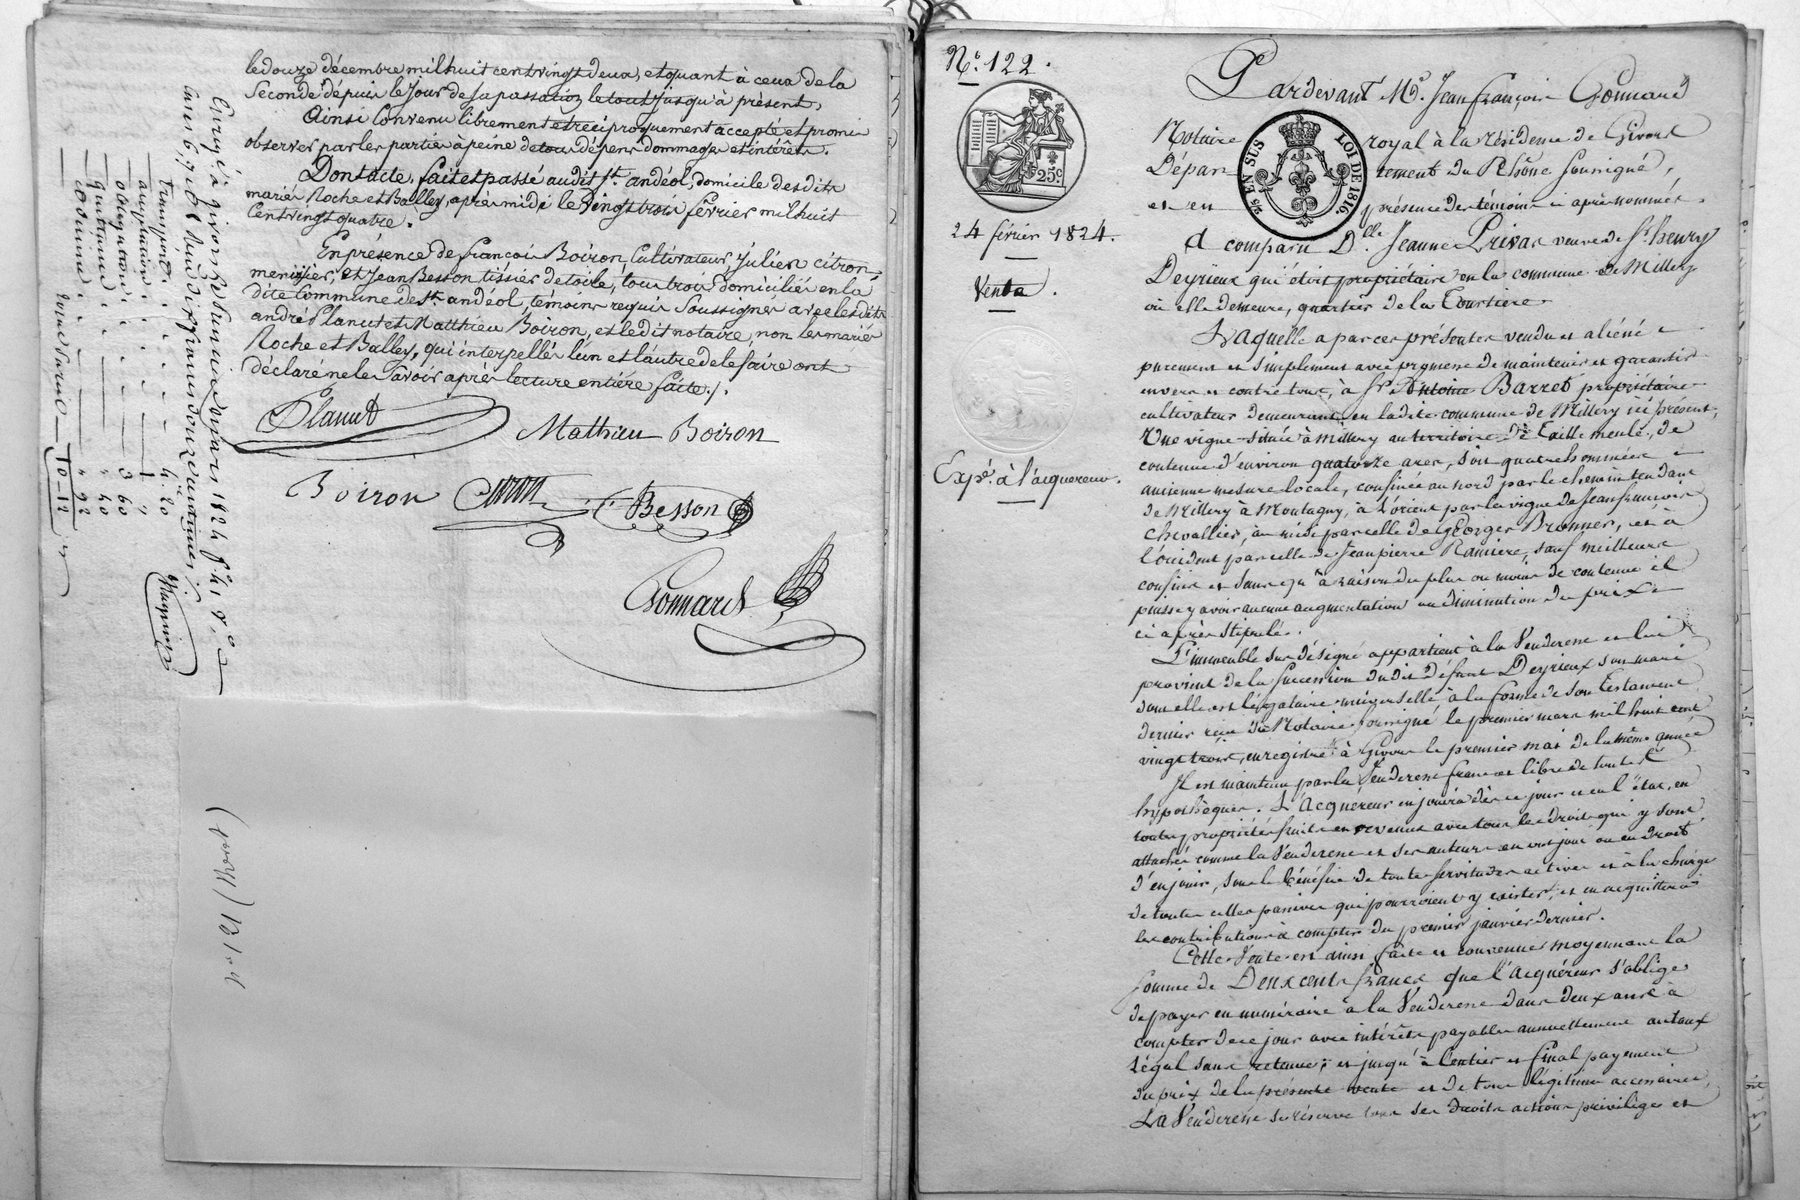 le douze décembre mil huit cent vingt deux, et quant à ceux de la
Seconde depuis le Jour de sa passation, le tout Jusqu'à présent.
Ainsi Convenu librement et réciproquement accepté et promis
observer par les parties à peine de tous dépens dommages et intérêts.
Dont acte, fait et passé audit St. andéol, domicile desdits
mariés Roche et Balley, après midi le Vingt trois février mil huit
Cent vingt quatre.
En présence de françois Boiron, Cultivateur, Julien citron,
menuisier, et Jean Besson tissier de toile, tous trois domiciliés en la
dite Commune de St. andéol, témoins requis Soussignés avec lesdits
andré Planut et Matthieu Boiron, et ledit notaire, non les mariés
Roche et Balley, qui interpellés l'un et l'autre de le faire ont
déclaré ne le Savoir après lecture entière faite./.
Planut
Mathieu Boiron
Boiron Citron Besson
Gonnard
Enregistré à givors le deux mars 1824 fo. 41 Vo. C
Transport 4. 20
obligation 3 60
quittance " 40
décime " 92
10-12
Nº. 122.
25 c.
24 février 1824.
Vente.
Expé. à l'acquéreur.
Pardevant Me. Jean François Gonnard
Notaire royal à la résidence de Givors
Département du Rhône soussigné,
et en présence des témoins ci après nommés.
25 EN SUS
LOI DE 1816.
A comparu Dlle. Jeanne Privas veuve de Sr. henry
Deyrieux qui étoit propriétaire en la commune de Millery
où elle demeure, quartier de la Tourtière.
Laquelle a par ces présentes vendu et aliéné
purement et simplement avec promesse de maintenir et garantir
envers et contre tous, à Sr. Antoine Barret propriétaire
cultivateur demeurant en ladite commune de Millery ici présent,
Une vigne située à Millery au territoire de Taille meule, de
contenue d'environ quatorze ares, soit quatre hommées
ancienne mesure locale, confinée au nord par le chemin tendant
de Millery à Montagny, à l'orient par la vigne de Jean francois
Chevallier, au midi par celle de George Bronner, et à
l'occident par celle de Jean pierre Ramière, sauf meilleurs
confins et sans qu'à raison du plus ou moins de contenue il
puisse y avoir aucune augmentation ou diminution du prix
ci après stipulé.
L'immeuble sus désigné appartient à la Venderesse et lui
provient de la succession dudit défunt Deyrieux son mari
dont elle est légataire universelle, à la forme de son testament
dernier reçu du Notaire soussigné le premier mars mil huit cent
vingt trois, enregistré à Givors le premier mai de la même année
Il est maintenu par la Venderesse franc et libre de toutes
hypothèques. L'acquéreur en jouira dès ce jour et en l'état, en
toutes propriétés fruits et revenus avec tous les droits qui y sont
attachés comme la Venderesse et ses auteurs en ont joui ou eu droit
d'en jouir, sous le bénéfice de toutes servitudes actives et à la charge
de toutes celles passives qui pourroient y exister, et en acquittera
les contributions à compter du premier janvier dernier.
Cette Vente est ainsi faite et convenue moyennant la
somme de Deux cents francs que l'acquéreur s'oblige
de payer en numéraire à la Venderesse dans deux ans à
compter de ce jour avec intérêts payables annuellement au taux
légal sans retenue; et jusqu'à l'entier et final payement
du prix de la présente vente et de tous légitimes accessoires,
La Venderesse se réserve tous ses droits actions privilèges et